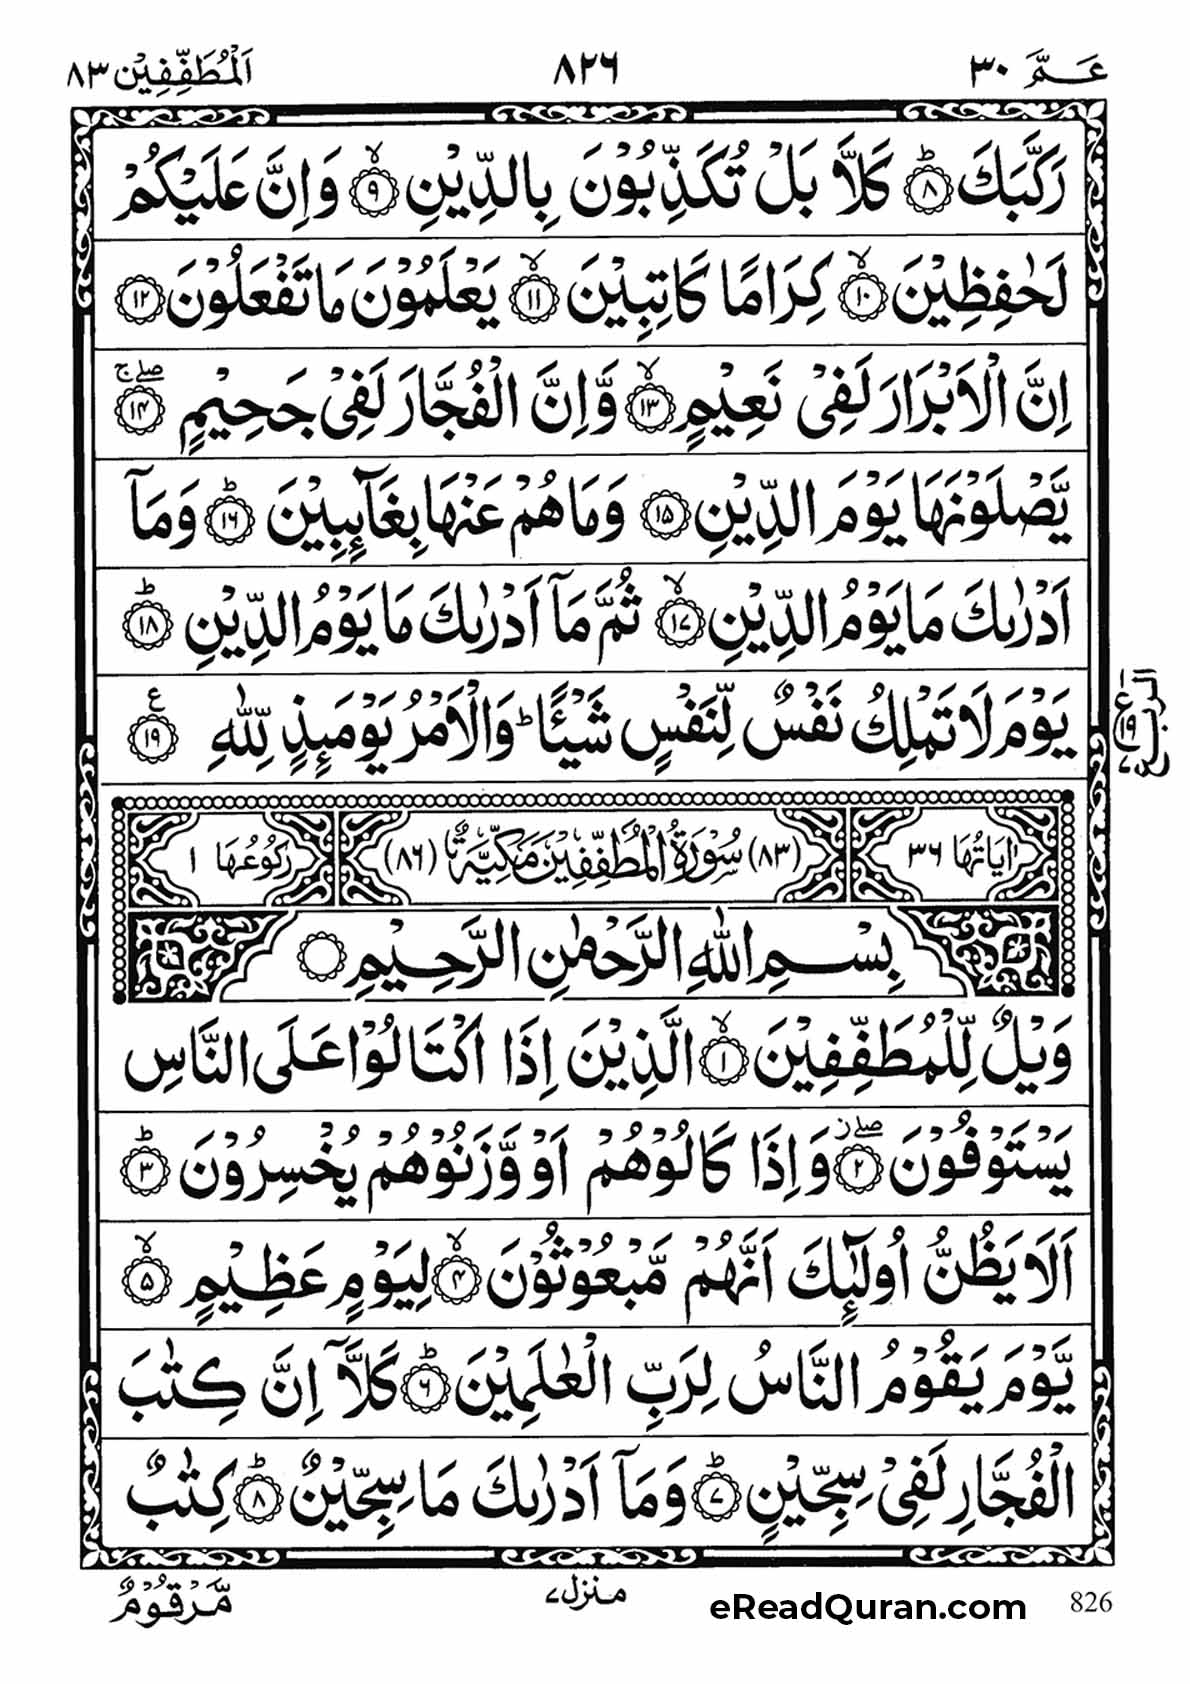 عَمَّ ٣٠
٨٢٦
اَلْمُطَفِّفِيْن ٨٣
رَكَّبَكَ ؕ﴿۸﴾ كَلَّا بَلْ تُكَذِّبُوْنَ بِالدِّيْنِ ۙ﴿۹﴾ وَاِنَّ عَلَيْكُمْ
لَحٰفِظِيْنَ ۙ﴿۱۰﴾ كِرَامًا كَاتِبِيْنَ ۙ﴿۱۱﴾ يَعْلَمُوْنَ مَا تَفْعَلُوْنَ ﴿۱۲﴾
اِنَّ الْاَبْرَارَ لَفِيْ نَعِيْمٍ ۙ﴿۱۳﴾ وَّاِنَّ الْفُجَّارَ لَفِيْ جَحِيْمٍ ۖۚ﴿۱۴﴾
يَّصْلَوْنَهَا يَوْمَ الدِّيْنِ ﴿۱۵﴾ وَمَا هُمْ عَنْهَا بِغَآئِبِيْنَ ؕ﴿۱۶﴾ وَمَآ
اَدْرٰىكَ مَا يَوْمُ الدِّيْنِ ۙ﴿۱۷﴾ ثُمَّ مَآ اَدْرٰىكَ مَا يَوْمُ الدِّيْنِ ؕ﴿۱۸﴾
يَوْمَ لَا تَمْلِكُ نَفْسٌ لِّنَفْسٍ شَيْـًٔا ؕ وَالْاَمْرُ يَوْمَئِذٍ لِّلّٰهِ ﴿۱۹﴾ ع
الربع
ع ١٩ ٧
اٰيَاتُهَا ٣٦
(٨٣) سُوْرَةُ الْمُطَفِّفِيْنَ مَكِّيَّةٌ (٨٦)
رُكُوْعُهَا ١
بِسْمِ اللّٰهِ الرَّحْمٰنِ الرَّحِيْمِ
وَيْلٌ لِّلْمُطَفِّفِيْنَ ۙ﴿۱﴾ الَّذِيْنَ اِذَا اكْتَالُوْا عَلَى النَّاسِ
يَسْتَوْفُوْنَ ۖز﴿۲﴾ وَاِذَا كَالُوْهُمْ اَوْ وَّزَنُوْهُمْ يُخْسِرُوْنَ ؕ﴿۳﴾
اَلَا يَظُنُّ اُولٰٓئِكَ اَنَّهُمْ مَّبْعُوْثُوْنَ ۙ﴿۴﴾ لِيَوْمٍ عَظِيْمٍ ۙ﴿۵﴾
يَّوْمَ يَقُوْمُ النَّاسُ لِرَبِّ الْعٰلَمِيْنَ ؕ﴿۶﴾ كَلَّآ اِنَّ كِتٰبَ
الْفُجَّارِ لَفِيْ سِجِّيْنٍ ؕ﴿۷﴾ وَمَآ اَدْرٰىكَ مَا سِجِّيْنٌ ؕ﴿۸﴾ كِتٰبٌ
مَّرْقُوْمٌ
منزل ٧
eReadQuran.com
826